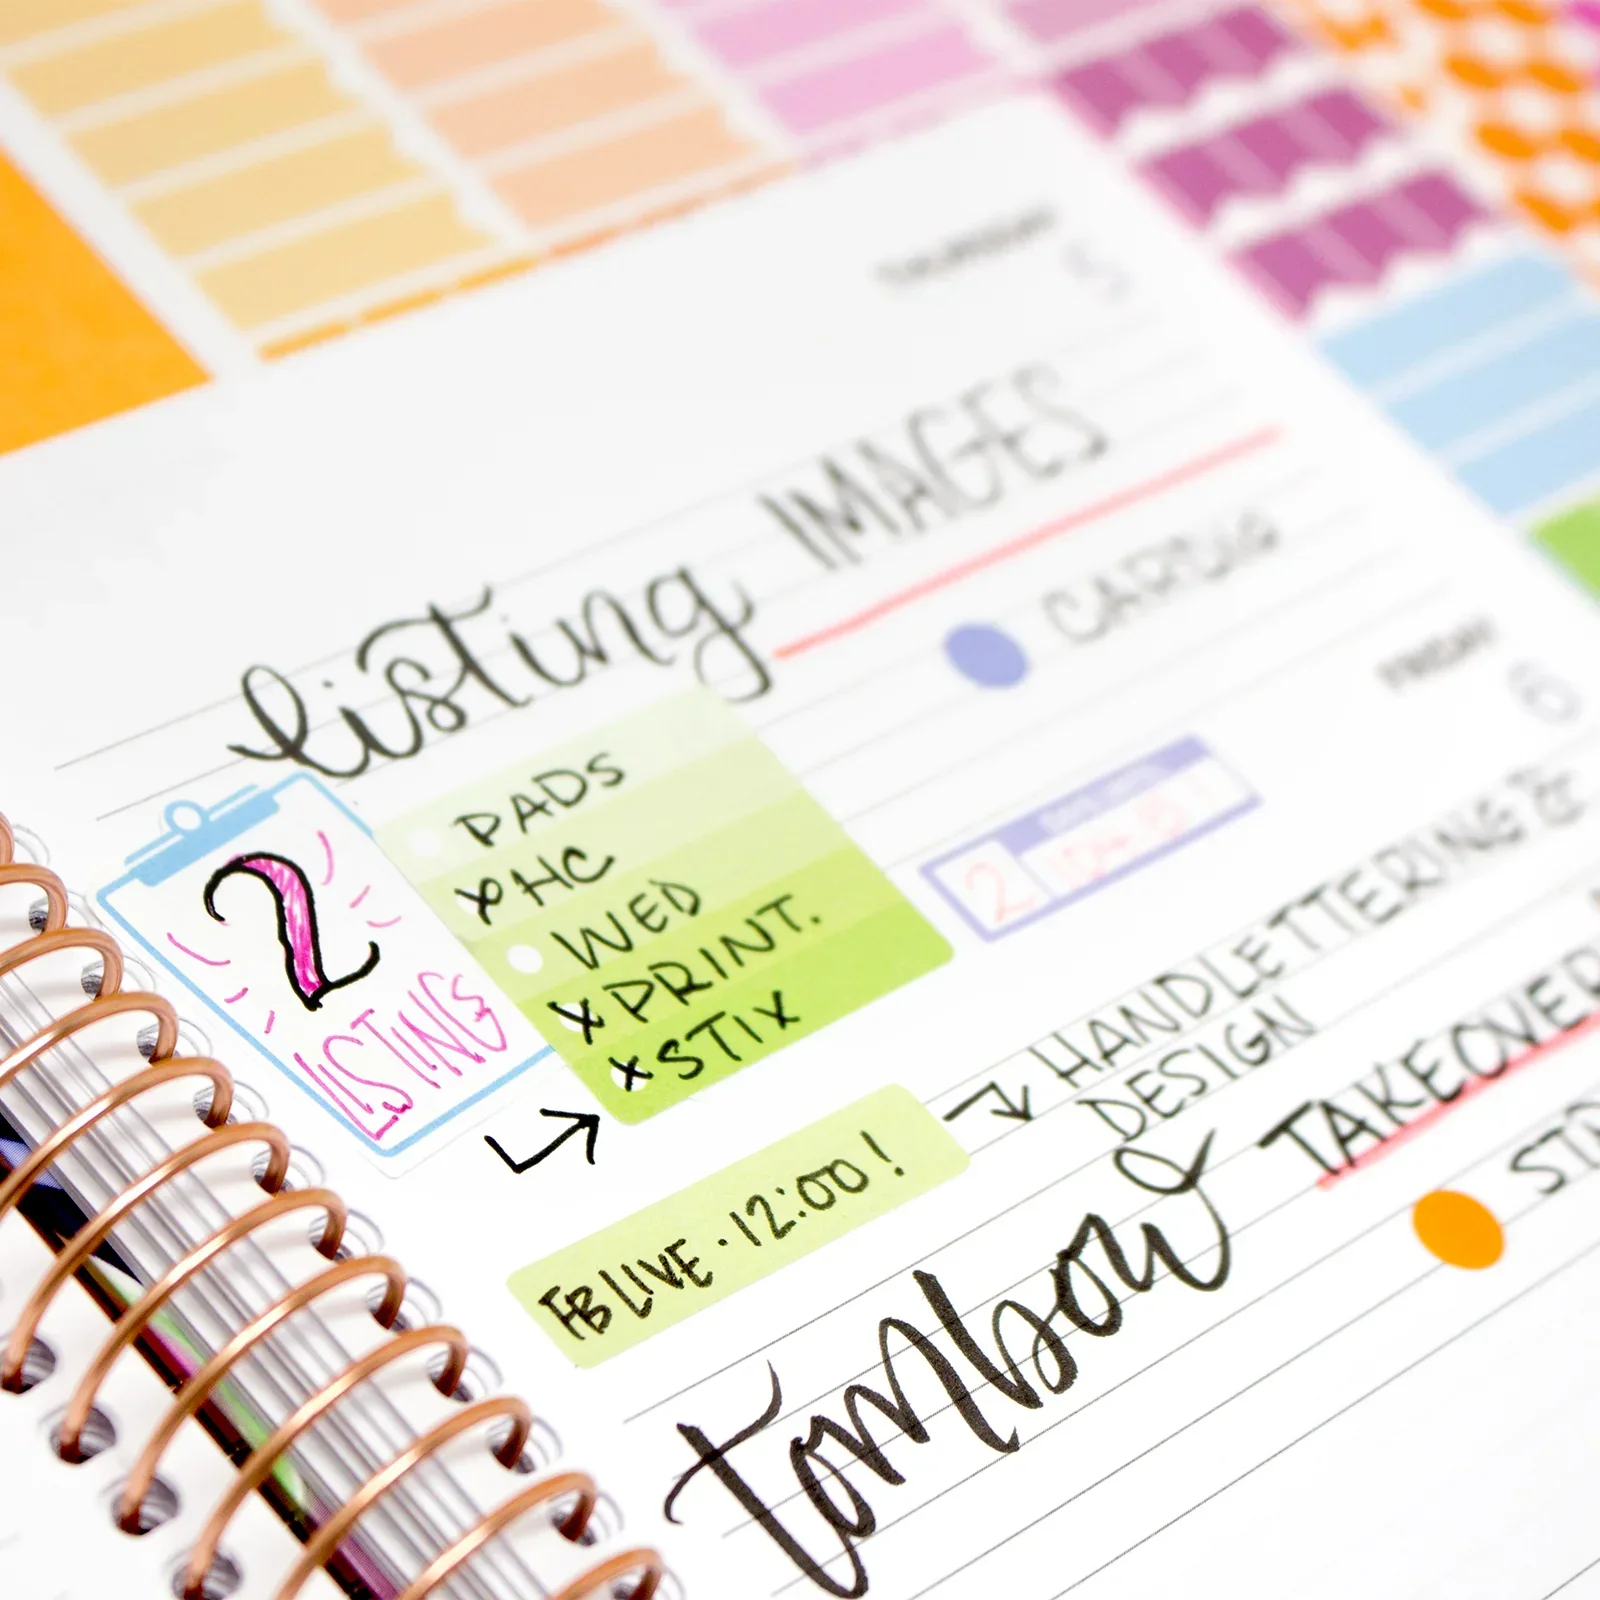 THURSDAY
5
listing IMAGES
CARDIO
2
LISTINGS
PADS
x HC
WED
x PRINT.
x STIX
FRIDAY
6
2
HANDLETTERING &
DESIGN
FB LIVE · 12:00!
tombow TAKEOVER